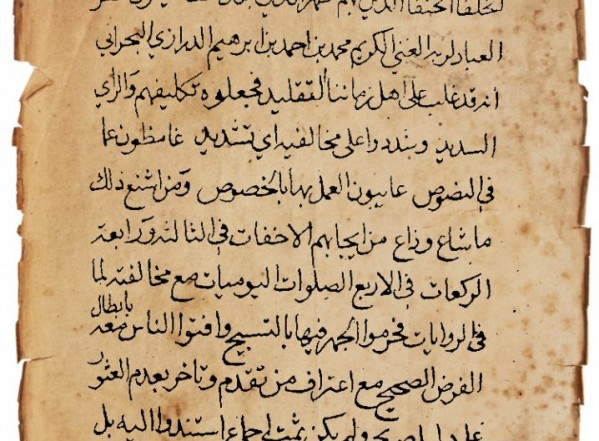 العباد لربه الغني الكريم محمد بن احمد بن ابرهيم الدرازي البحراني
انه قد غلب على اهل زماننا التقليد فجعلوه تكليفهم والراي
السديد وشددوا على مخالفيه اي تشديد غامظون عما
في النصوص عايبون العمل بها بالخصوص ومن اشنع ذلك
ما شاع وذاع من ايجابهم الاخفات في الثالثة ورابعة
الركعات في الاربع الصلوات اليوميات مع مخالفته لما
في الروايات فحرموا الجهر فيها بالتسبيح وافتوا الناس معه بابطال
الفرض الصحيح مع اعتراف من تقدم وتاخر بعدم العثور
على دليل صريح ولم يكن ثمت اجماع استندوا اليه بل